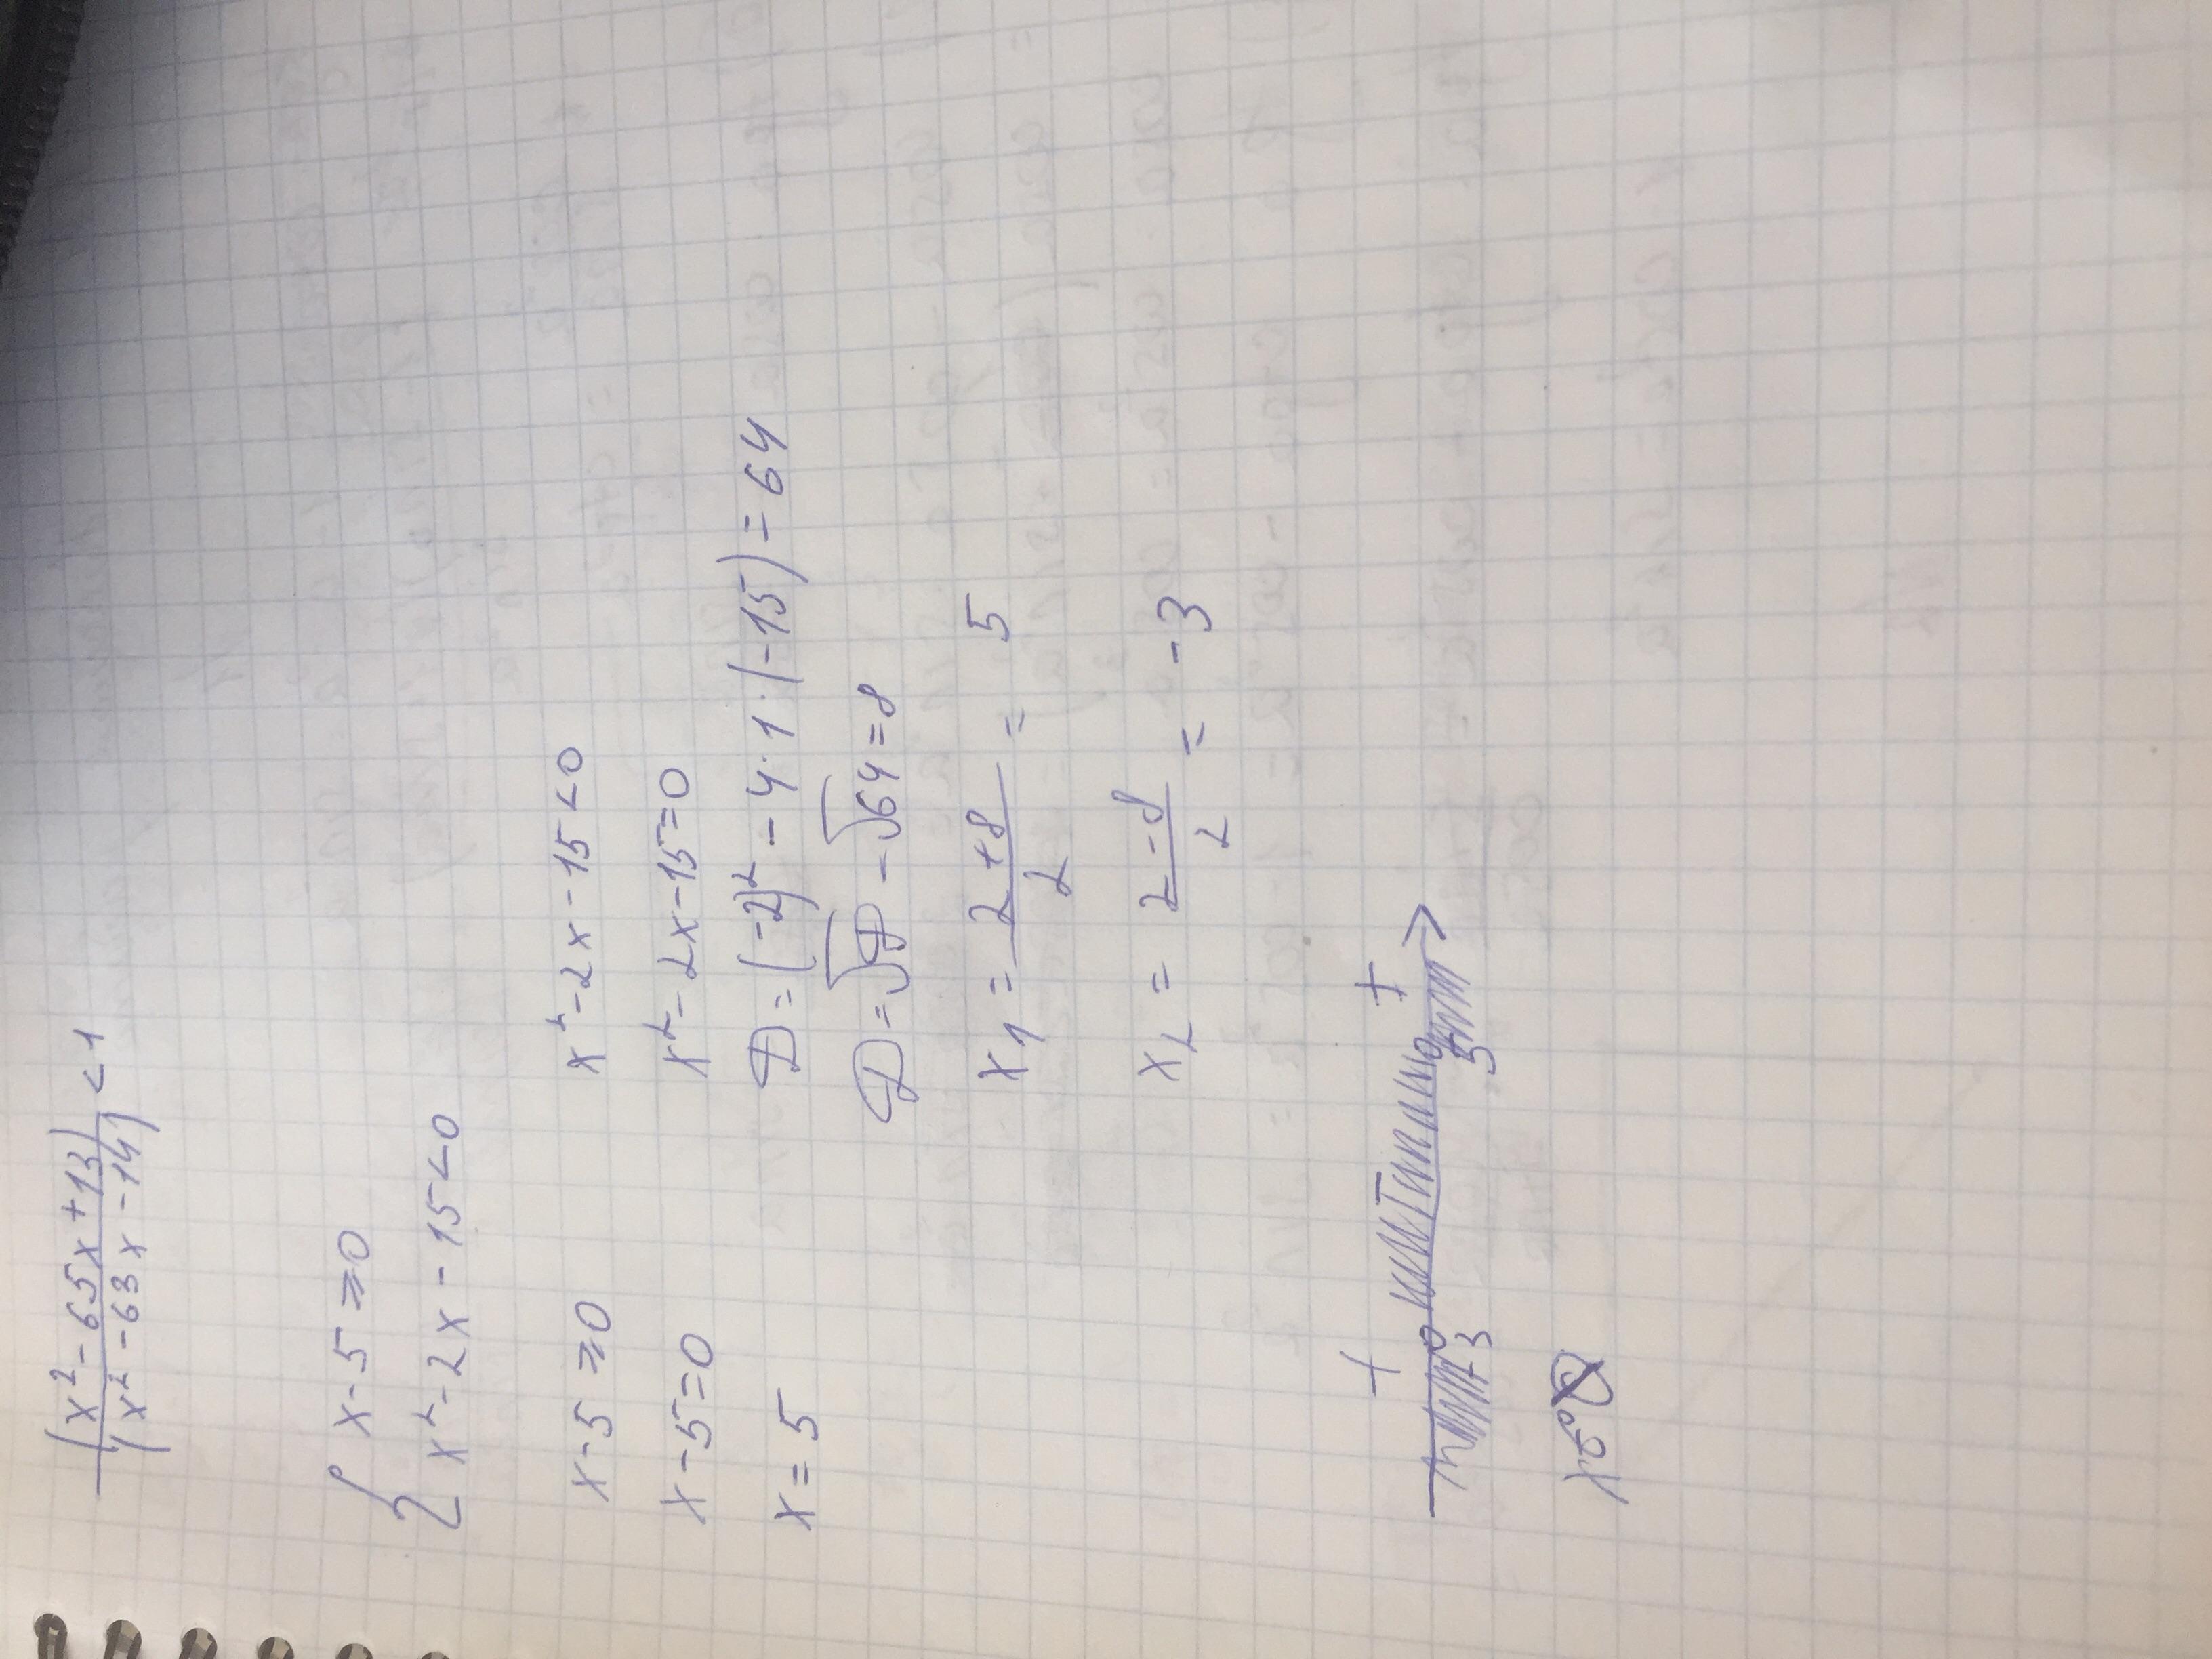 (x² - 65x + 13)
(x² - 63x - 14) < 1
{ x - 5 ⩾ 0
x² - 2x - 15 < 0
x - 5 ⩾ 0
x - 5 = 0
x = 5
x² - 2x - 15 < 0
x² - 2x - 15 = 0
D = (-2)² - 4·1·(-15) = 64
D = √D - √64 = 8
x₁ = 2+8/2 = 5
x₂ = 2-8/2 = -3
+ - +
-3 5